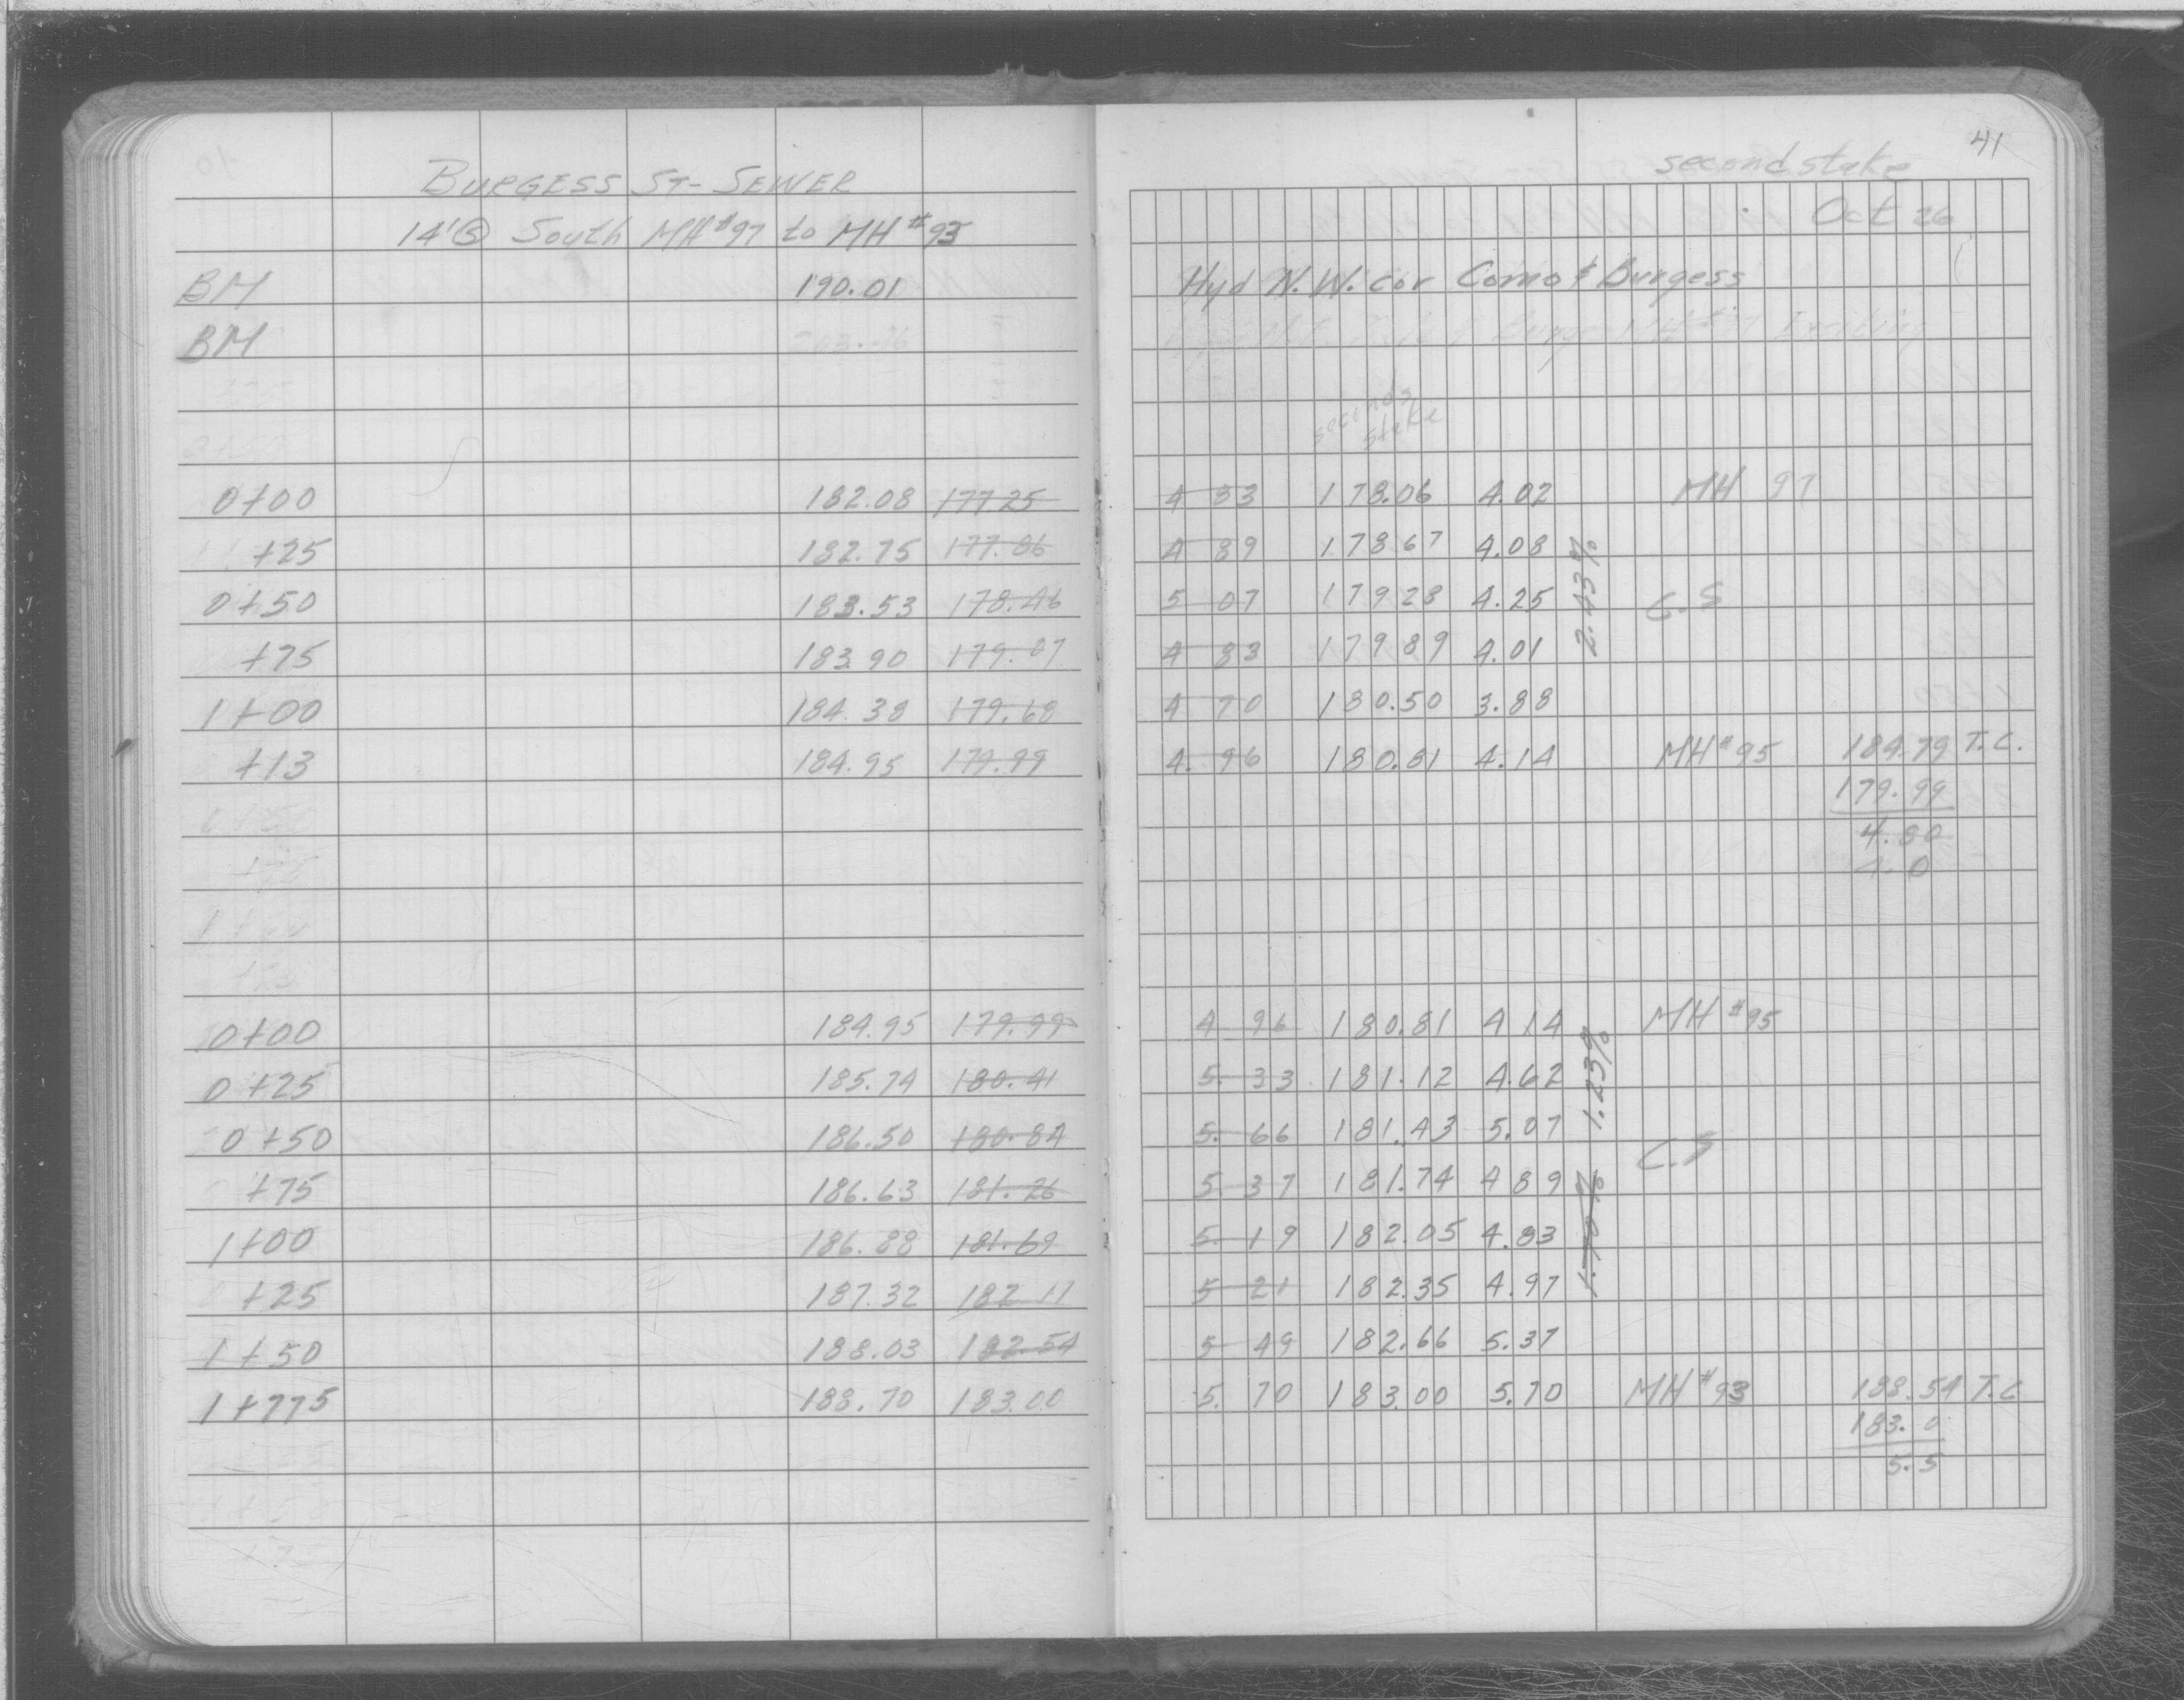 BURGESS ST- SEWER
14' Ⓢ South MH #97 to MH #93
BM 190.01
BM
0+00 182.08 177 25
+25 182.75 177.86
0+50 183.53 178.46
+75 183 90 179.07
1+00 184.38 179.68
+13 184.95 179.99
0+00 184.95 179.99
0+25 185.74 180.41
0+50 186.50 180.84
+75 186.63 181.26
1+00 186.88 181.69
+25 187.32 182 11
1+50 188.03 182.54
1+775 188.70 183.00
41
second stake
Oct 26
Hyd N.W. cor Como & Burgess
seconds
stake
4 33 178.06 4.02 MH 97
4 89 178 67 4.08
2.43%
5 07 179 28 4.25 C.S
4 83 179 89 4.01
4 70 180.50 3.88
4.96 180.81 4.14 MH #95 184.79 T.C.
179.99
4.80
4.0
4 96 180.81 4 14 MH #95
5.33 181.12 4.62
1.23%
5.66 181.43 5.07 C.S
5.37 181.74 4 89
5.19 182.05 4.83
1.70%
5 21 182.35 4.97
5 49 182.66 5.37
5.70 183.00 5.70 MH #93 188.54 T.C
183.0
5.5